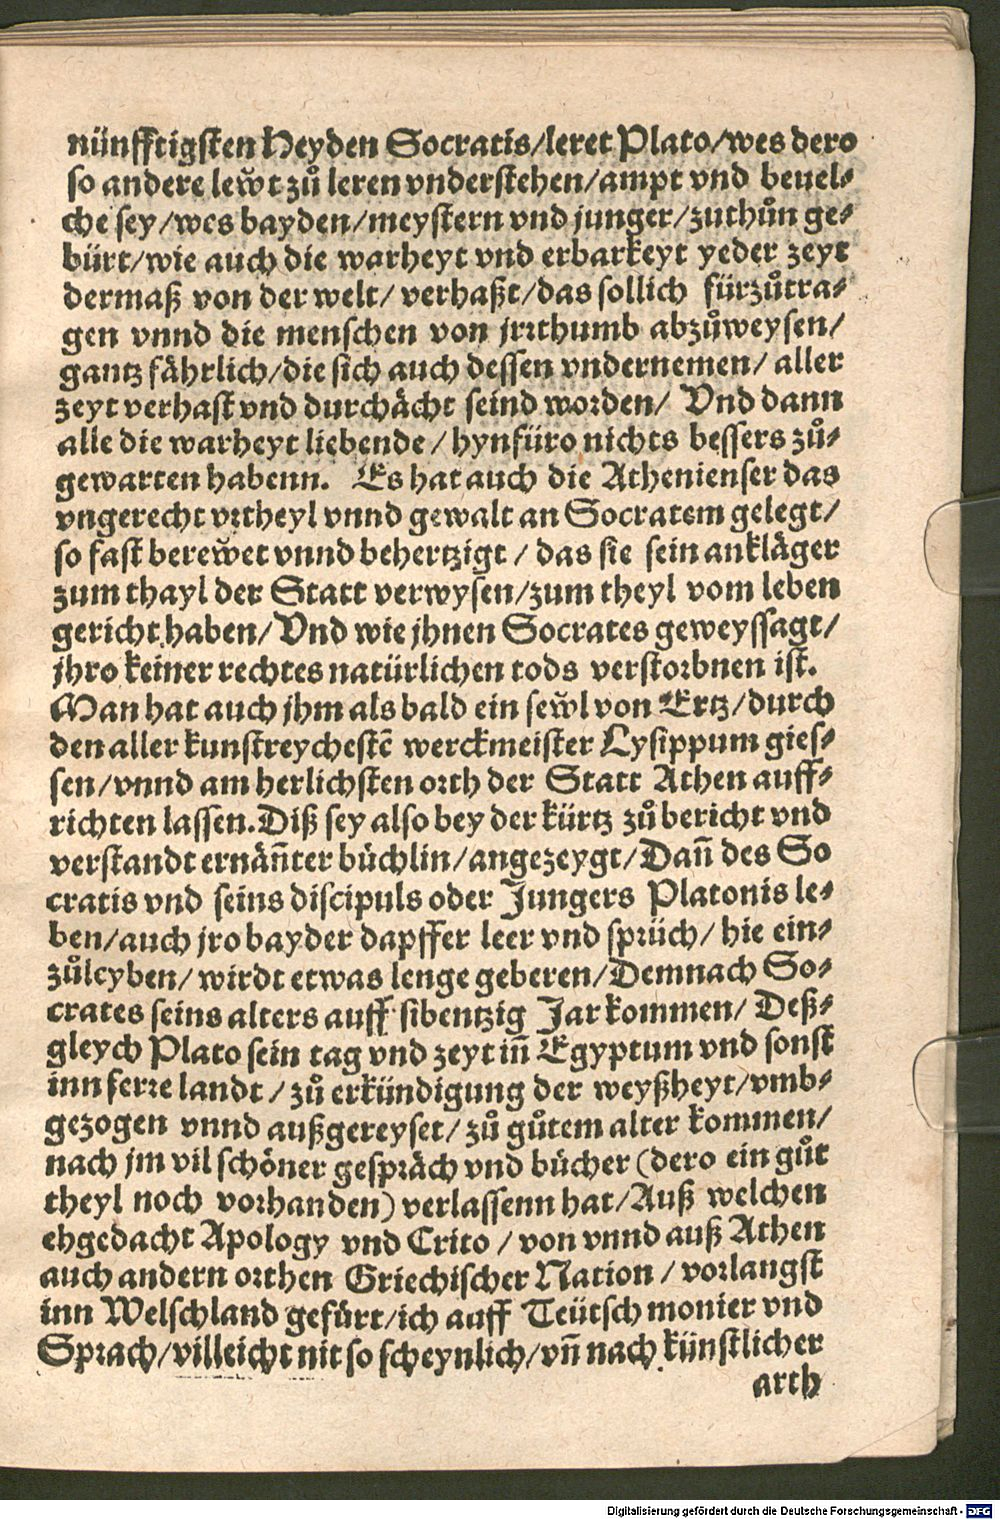 nünfftigsten Heyden Socratis/leret Plato/wes dero
so andere lew̌t zů leren vnderstehen/ampt vnd beuel-
che sey/wes bayden/meystern vnd junger/zuthůn ge-
bürt/wie auch die warheyt vnd erbarkeyt yeder zeyt
dermaß von der welt/ verhaßt/das sollich fürzůtra-
gen vnnd die menschen von jrrthumb abzůweysen/
gantz fährlich/die sich auch dessen vndernemen/ aller
zeyt verhast vnd durchächt seind worden/ Vnd dann
alle die warheyt liebende/hynfüro nichts bessers zů-
gewarten habenn. Es hat auch die Athenienser das
vngerecht vrtheyl vnnd gewalt an Socratem gelegt/
so fast berew̌et vnnd behertzigt/ das sie sein ankläger
zum thayl der Statt verwysen/zum theyl vom leben
gericht haben/Vnd wie jhnen Socrates geweyssagt/
jhro keiner rechtes natürlichen tods verstorbnen ist.
Man hat auch jhm als bald ein sew̌l von Ertz/durch
den aller kunstreychestē werckmeister Lysippum gies-
sen/vnnd am herlichsten orth der Statt Athen auff-
richten lassen. Diß sey also bey der kürtz zů bericht vnd
verstandt ernäñter büchlin/angezeygt/Dañ des So
cratis vnd seins discipuls oder Jungers Platonis le-
ben/auch jro bayder dapffer leer vnd sprüch/ hie ein-
zůleyben/wirdt etwas lenge geberen/Demnach So-
crates seins alters auff sibentzig Jar kommen/ Deß-
gleych Plato sein tag vnd zeyt iñ Egyptum vnd sonst
inn ferre landt/zů erkündigung der weyßheyt/vmb-
gezogen vnnd außgereyset/zů gůtem alter kommen/
nach jm vil schöner gespräch vnd bücher (dero ein gůt
theyl noch vorhanden) verlassenn hat/Auß welchen
ehgedacht Apology vnd Crito/von vnnd auß Athen
auch andern orthen Griechischer Nation/vorlangst
inn Welschland gefürt/ich auff Teütsch monier vnd
Sprach/villeicht nit so scheynlich/vñ nach künstlicher
arth
Digitalisierung gefördert durch die Deutsche Forschungsgemeinschaft - DFG